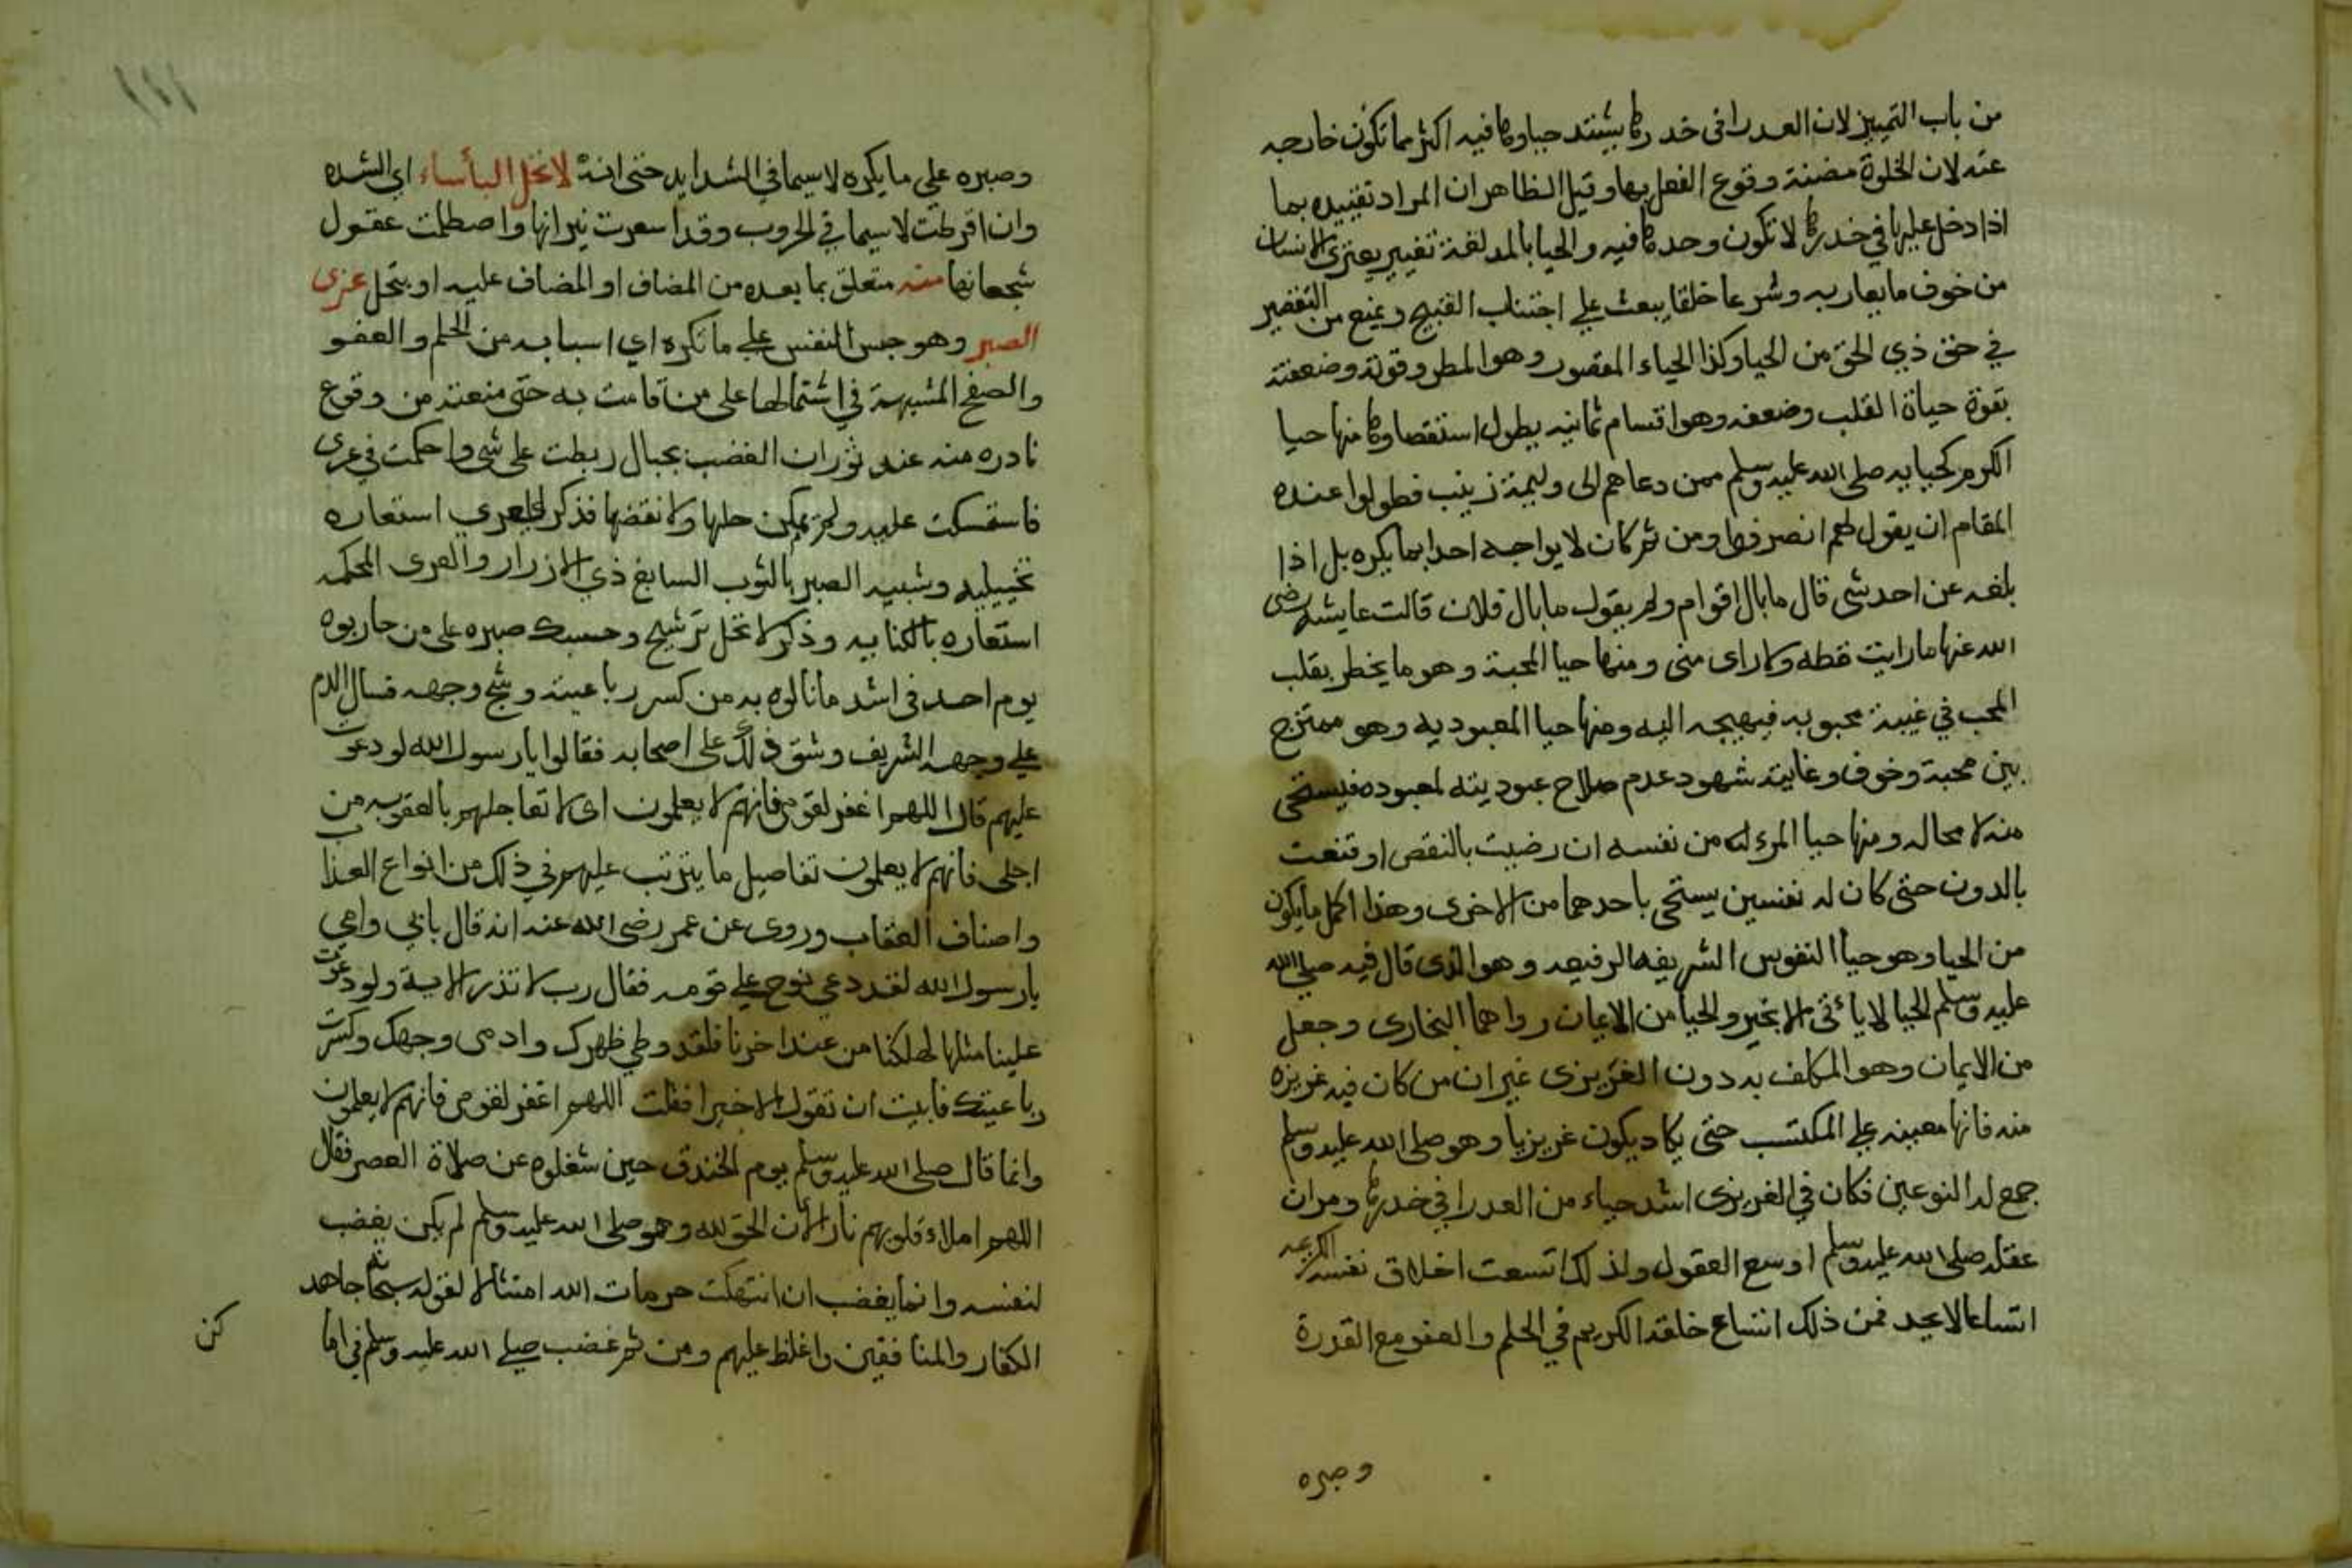 من باب التمييز لان العدرا في خدرها يشتد حياوها فيه اكثر مما تكون خارجه
عنه لان الخلوة مضنة وقوع الفعل بها وقيل الظاهر ان المراد تقييده بما
اذا دخل عليها في خدرها لا تكون وحدها فيه والحيا بالمد لغة تغيير يعتري الانسان
من خوف ما يعاربه وشرعا خلقا يبعث على اجتناب القبيح ويمنع من التقصير
في حق ذي الحق من الحيا وكذا الحياء المقصور وهو المطر وقوته وضعفته
بقوة حياة القلب وضعفه وهو اقسام ثمانيه يطول استقصاوها منها حيا
الكرم كحيايه صلى الله عليه وسلم ممن دعاهم الى وليمة زينب فطولوا عنده
المقام ان يقول لهم انصرفوا ومن ثم كان لا يواجه احدا بما يكره بل اذا
بلغه عن احد شي قال ما بال اقوام ولم يقول ما بال فلان قالت عايشه رضى
الله عنها ما رايت قطه ولا راى منى ومنها حيا المحبة وهو ما يخطر بقلب
المحب في غيبة محبوبه فيهيجه اليه ومنها حيا المعبوديه وهو ممتزج
بين محبة وخوف وغايته شهود عدم صلاح عبوديته لمعبوده فيستحى
منه لا محاله ومنها حيا المرء له من نفسه ان رضيت بالنقص او قنعت
بالدون حتى كان له نفسين يستحى باحدهما من الاخرى وهذا اكمل ما يكون
من الحيا وهو حيا النفوس الشريفه الرفيعه وهو الذى قال فيه صلى الله
عليه وسلم الحيا لا ياتى الا بخير والحيا من الايمان رواهما البخارى وجعل
من الايمان وهو المكلف به دون الغريزى غير ان من كان فيه غريزه
منه فانها معينه على المكتسب حتى يكاد يكون غريزيا وهو صلى الله عليه وسلم
جمع له النوعين فكان في الغريزى اشد حياء من العدرا في خدرها ومر ان
عقله صلى الله عليه وسلم اوسع العقول ولذلك اتسعت اخلاق نفسه الكريمه
اتساعا لا يحد فمن ذلك اتساع خلقه الكريم في الحلم والعفو مع القدرة
وصبره
وصبره على ما يكره لاسيما في الشدايد حتى انه لا تحل البأساء اي الشده
وان افرطت لاسيما في الحروب وقد اسعرت نيرانها واصطلمت عقول
شجعانها منه متعلق بما بعده من المضاف او المضاف عليه او بتحل عرى
الصبر وهو حبس النفس على ما تكره اي اسبابه من الحلم والعفو
والصفح المشبهة في اشتمالها على من قامت به حتى منعته من وقوع
نادره منه عند ثوران الغضب بحبال ربطت على شى واحكمت في عرى
فاستمسكت عليه ولم يمكن حلها ولا نقضها فذكر العرى استعاره
تخييليه وشبيه الصبر بالثوب السابغ ذي الازرار والعرى المحكمه
استعاره بالكنايه وذكر لا تحل ترشيح وحسبك صبره على من حاربوه
يوم احد في اشد ما نالوه به من كسر رباعيته وشج وجهه فسال الدم
على وجهه الشريف وشق ذلك على اصحابه فقالوا يا رسول الله لو دعوت
عليهم قال اللهم اغفر لقومى فانهم لا يعلمون اى لا تعاجلهم بالعقوبه من
اجلى فانهم لا يعلمون تفاصيل ما يترتب عليهم في ذلك من انواع العذاب
واصناف العقاب وروى عن عمر رضى الله عنه انه قال بابي وامي
يا رسول الله لقد دعى نوح على قومه فقال رب لا تذر الاية ولو دعوت
علينا مثلها لهلكنا من عند اخرنا فلقد وطي ظهرك وادمى وجهك وكسرت
رباعيتك فابيت ان تقول الا خيرا فقلت اللهم اغفر لقومى فانهم لا يعلمون
وانما قال صلى الله عليه وسلم يوم الخندق حين شغلوه عن صلاة العصر فقال
اللهم املاء قلوبهم نارا لان الحق لله وهو صلى الله عليه وسلم لم يكن يغضب
لنفسه وانما يغضب ان انتهكت حرمات الله امتثالا لقوله سبحانه جاهد
الكفار والمنافقين واغلظ عليهم ومن ثم غضب صلى الله عليه وسلم في اما
كن